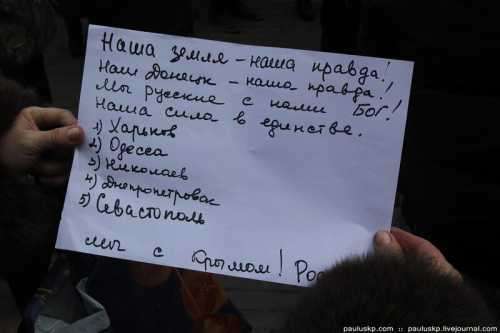 Наша земля – наша правда!
Наш Донецк – наша правда!
Мы русские с нами Бог!
Наша сила в единстве.
1) Харьков
2) Одесса
3) Николаев
4) Днепропетровск
5) Севастополь
мы с Крымом! Рос
pauluskp.com :: pauluskp.livejournal.com